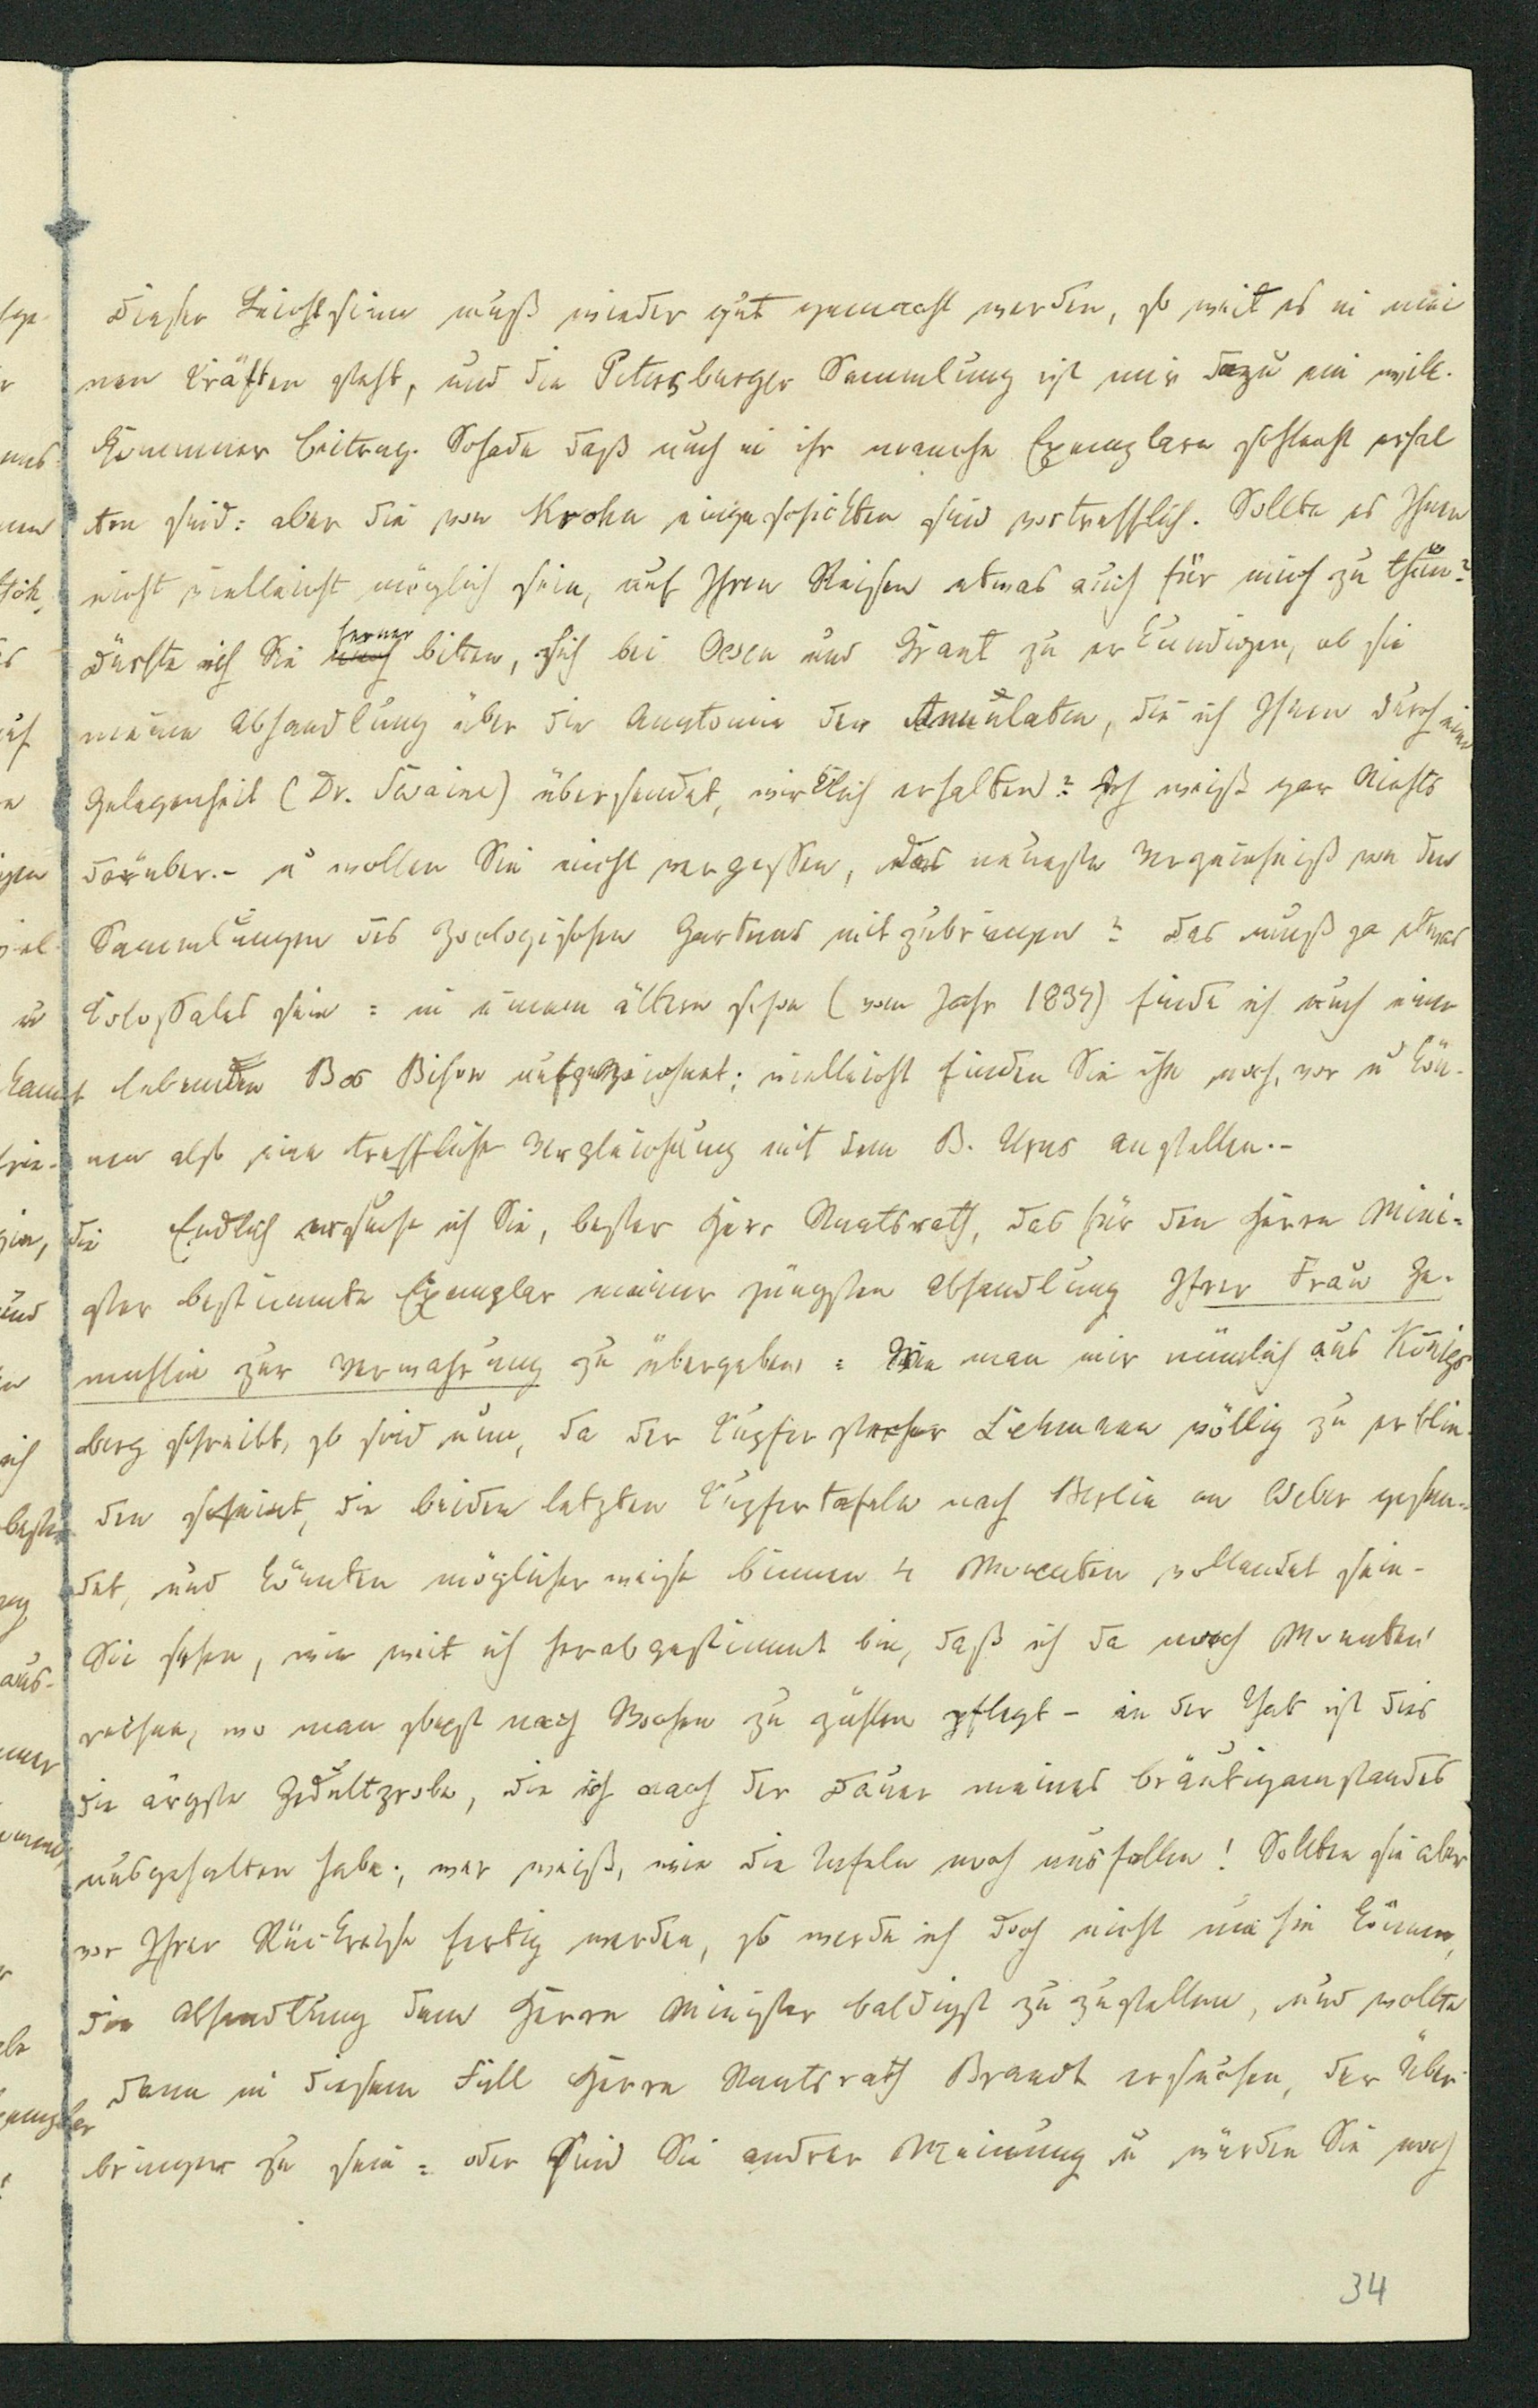 Dieser Leichtsinn muß wieder gut gemacht werden, so weit es in mei
nen Kräften steht, und die Petersburger Sammlung ist mir dazu ein will-
kommner Beitrag. Schade daß auch in ihr manche Exemplare schlecht erhal
ten sind: aber die von Krohn eingeschickten sind vortrefflich. Sollte es Ihnen
nicht vielleicht möglich sein, auf Ihren Reisen etwas auch für mich zu thun?
Dürfte ich Sie ferner bitten, sich bei Owen und Grant zu erkundigen, ob sie
meine Abhandlung über die Anatomie der Annulaten, die ich Ihnen durch eine
Gelegenheit (Dr. Swaine) übersendet, wirklich erhalten? Ich weiß gar Nichts
darüber.- u wollen Sie nicht vergessen, das neueste Verzeichniß von den
Sammlungen des zoologischen Gartens mitzubringen? das muß ja etwas
Colossales sein: in einem ältern schon (vom Jahr 1834) finde ich auch einen
lebenden Bos Bison aufgezeichnet; vielleicht finden Sie ihn noch vor u kön-
nen also eine treffliche Vergleichung mit dem B. Urus anstellen.-
Endlich ersuche ich Sie, bester Herr Staatsrath, das für den Herrn Mini-
ster bestimmte Exemplar meiner jüngsten Abhandlung Ihrer Frau Ge-
mahlin zur Verwahrung zu übergeben: Wie man mir nämlich aus Königs
berg schreibt, so sind nun, da der Kupferstecher Lehmann völlig zu erblin-
den scheint, die beiden letzten Kupfertafeln nach Berlin an Weber gesen-
det, und könnten möglicherweise binnen 4 Monaten vollendet sein-
Sie sehen, wie weit ich herabgestimmt bin, daß ich da nach Monaten
rechne, wo man sonst nach Wochen zu zählen pflegt - in der That ist dies
die ärgste Gedultprobe, die ich nach der Dauer meines Bräutigamstandes
ausgehalten habe; wer weiß, wie die Tafeln noch ausfallen! Sollten sie aber
vor Ihrer Rückreise fertig werden, so werde ich doch nicht umhin können,
die Abhandlung dem Herrn Minister baldigst zu zustellen, und wollte
dann in diesem Fall Herrn Staatsrath Brandt ersuchen, der Über-
bringer zu sein: oder sind Sie andrer Meinung u würden Sie noch
34